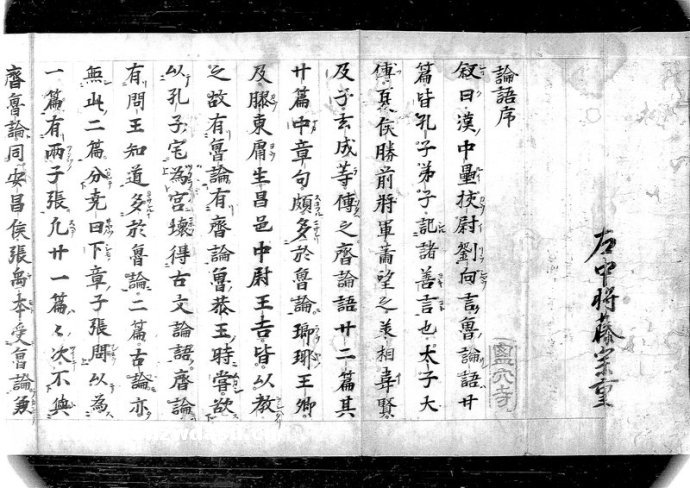 左中将藤宗重
論語序
叙曰漢中壘挍尉劉向言魯論語廿
篇皆孔子弟子記諸善言也太子大
傅夏侯勝前將軍蕭望之丞相韋賢
及子玄成等傳之齊論語廿二篇其
廿篇中章句頗多於魯論瑯琊王卿
及膠東庸生昌邑中尉王吉皆以教
之故有魯論有齊論魯恭王時嘗欲
以孔子宅為宮壊得古文論語齊論
有問王知道多於魯論二篇古論亦
無此二篇分堯曰下章子張問以為
一篇有兩子張凡廿一篇々次不與
齊魯論同安昌侯張禹本受魯論兼